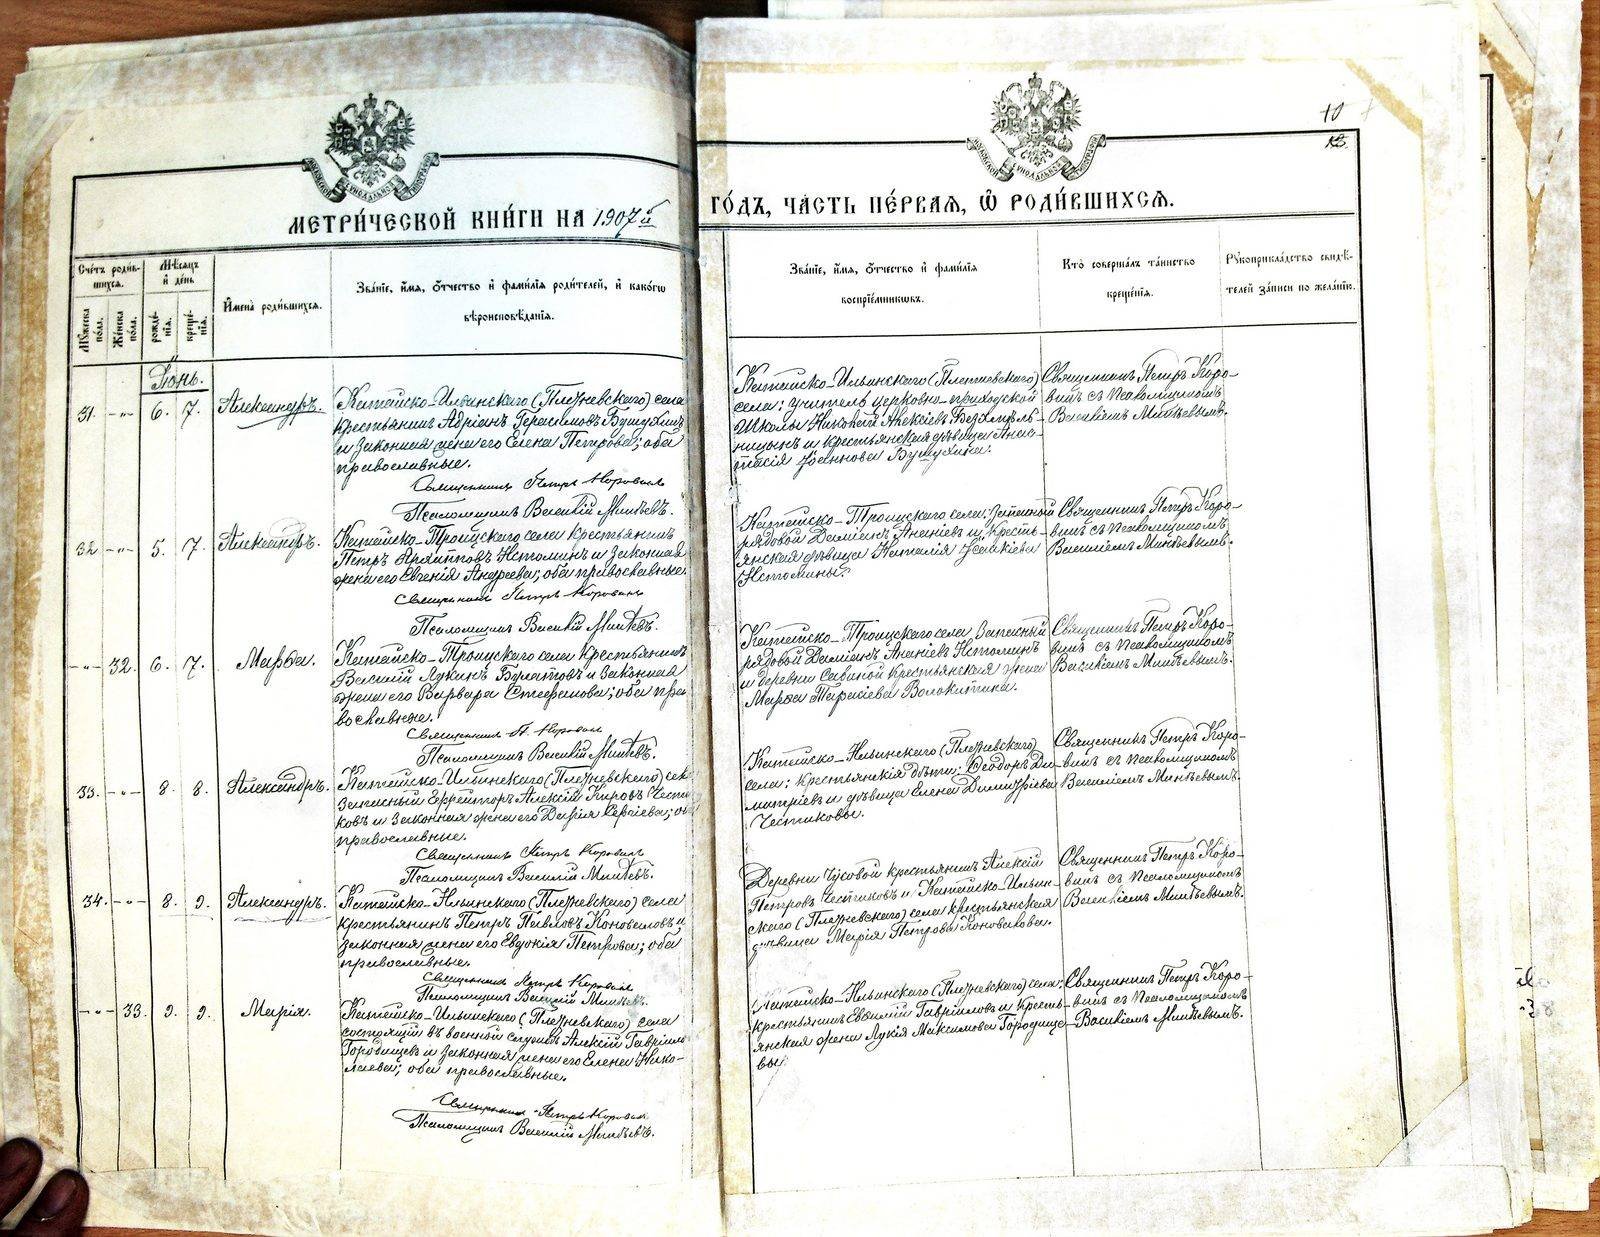 МЕТРИ́ЧЕСКОЙ КНИ́ГИ НА 1907й
ГО́ДЪ, ЧА́СТЬ ПЕ́РВАЯ, Ѡ РОДИ́ВШИХСЯ.
10
Сче́тъ роди́в-
шихся.
Мѣсяцъ
и де́нь
Мꙋжеска по́ла.
Же́нска по́ла.
рожде́-
нія.
креще́-
нія.
И́мена роди́вшихся.
Зва́ніе, и́мя, ѻ́тчество и фами́лія роди́телей, и како́гѡ
вѣроисповѣ́данія.
Зва́ніе, и́мя, ѻ́тчество и фами́лія
воспріе́мникѡвъ.
Кто̀ соверша́лъ та́инство
креще́нія.
Рꙋкоприкла́дство свидѣ́-
телей за́писи по жела́нію.
Іюнь.
31. -„- 6. 7. Александръ.
Катайско-Ильинскаго (Плотневскаго) села
крестьянинъ Адріанъ Герасимовъ Бушухинъ
и законная жена его Елена Петрова; оба
православные.
Священникъ Петръ Коровинъ
Псаломщикъ Василій Минѣевъ.
Катайско-Ильинскаго
села: учитель церковно-приходской
школы Николай Алексѣевъ
и крестьянская дѣвица Анас-
тасія Іоаннова Бушухина.
Священникъ Петръ Коро-
винъ съ псаломщикомъ
Василіемъ Минѣевымъ.
32 -„- 5. 7. Александръ.
Катайско-Троицкаго села крестьянинъ
Петръ Архиповъ Истоминъ и законная
жена его Евгенія Андреева; оба православные.
Священникъ Петръ Коровинъ
Псаломщикъ Василій Минѣевъ.
Катайско-Троицкаго села: запасный
рядовой Даміанъ Ананіевъ и кресть-
янская дѣвица Наталія Іоакіева
Истомины.
Священникъ Петръ Коро-
винъ съ псаломщикомъ
Василіемъ Минѣевымъ.
-„- 32. 6. 7. Марѳа.
Катайско-Троицкаго села крестьянинъ
Василій Лукинъ и законная
жена его Варвара Стефанова; оба пра-
вославные.
Священникъ П. Коровинъ
Псаломщикъ Василій Минѣевъ.
Катайско-Троицкаго села запасный
рядовой Даміанъ Ананіевъ Истоминъ
и деревни Савиной крестьянская жена
Марѳа Тарасіева Волокитина.
Священникъ Петръ Коро-
винъ съ псаломщикомъ
Василіемъ Минѣевымъ.
33. -„- 8. 8. Александръ.
Катайско-Ильинскаго села
запасный ефрейторъ Алексій Кировъ Чести-
ковъ и законная жена его Дарія Сергіева; оба
православные.
Священникъ Петръ Коровинъ
Псаломщикъ Василій Минѣевъ.
Катайско-Ильинскаго
села: крестьянскія дѣти: Ѳеодоръ Ди-
митріевъ и дѣвица Елена Димитріева
Честиковы.
Священникъ Петръ Коро-
винъ съ псаломщикомъ
Василіемъ Минѣевымъ.
34. -„- 8. 9. Александръ.
Катайско-Ильинскаго села
крестьянинъ Петръ Павловъ Коноваловъ и
законная жена его Евдокія Петрова; оба
православные.
Священникъ Петръ Коровинъ
Псаломщикъ Василій Минѣевъ.
Деревни Чусовой крестьянинъ Алексій
Петровъ Честиковъ и Катайско-Ильин-
скаго села крестьянская
дѣвица Марія Петрова Коновалова.
Священникъ Петръ Коро-
винъ съ псаломщикомъ
Василіемъ Минѣевымъ.
-„- 33. 9. 9. Марія.
Катайско-Ильинскаго села
состоящій въ военной службѣ Алексій Гавріиловъ
Городищевъ и законная жена его Елена Нико-
лаева; оба православные.
Священникъ Петръ Коровинъ
Псаломщикъ Василій Минѣевъ.
Катайско-Ильинскаго села:
крестьянинъ Евѳимій Гавріиловъ и кресть-
янская жена Лукія Максимова Городище-
вы.
Священникъ Петръ Коро-
винъ съ псаломщикомъ
Василіемъ Минѣевымъ.